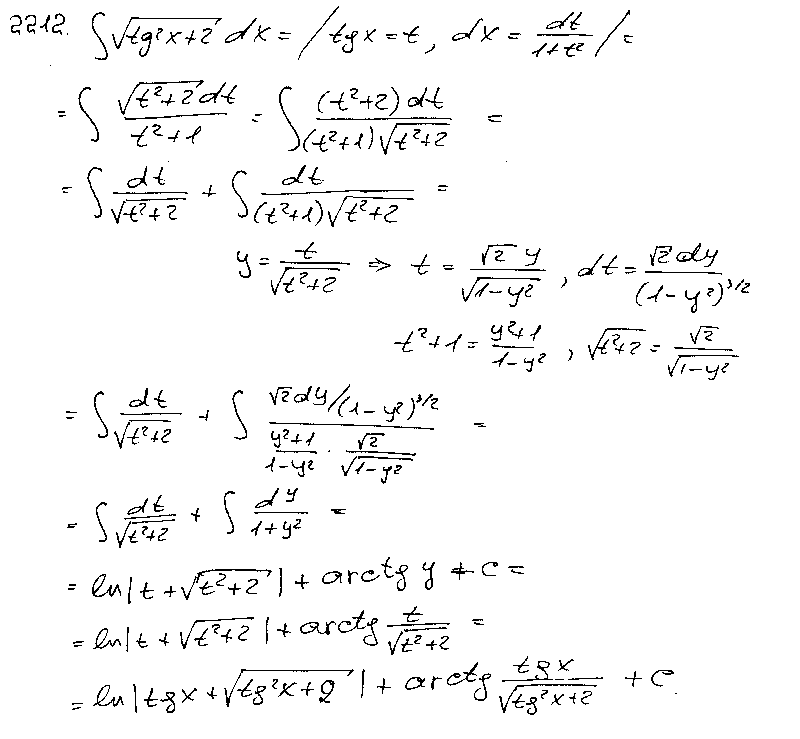 2212. ∫√(tg²x+2) dx = / tgx = t, dx = dt/(1+t²) / =
= ∫ √(t²+2) dt/(t²+1) = ∫ (t²+2) dt/((t²+1)√(t²+2)) =
= ∫ dt/√(t²+2) + ∫ dt/((t²+1)√(t²+2)) =
y = t/√(t²+2) ⇒ t = √2 y/√(1-y²), dt = √2 dy/(1-y²)^(3/2)
t²+1 = (y²+1)/(1-y²), √(t²+2) = √2/√(1-y²)
= ∫ dt/√(t²+2) + ∫ (√2 dy/(1-y²)^(3/2))/((y²+1)/(1-y²) · √2/√(1-y²)) =
= ∫ dt/√(t²+2) + ∫ dy/(1+y²) =
= ln|t+√(t²+2)| + arctg y + c =
= ln|t+√(t²+2)| + arctg t/√(t²+2) =
= ln|tgx+√(tg²x+2)| + arctg tgx/√(tg²x+2) + c.